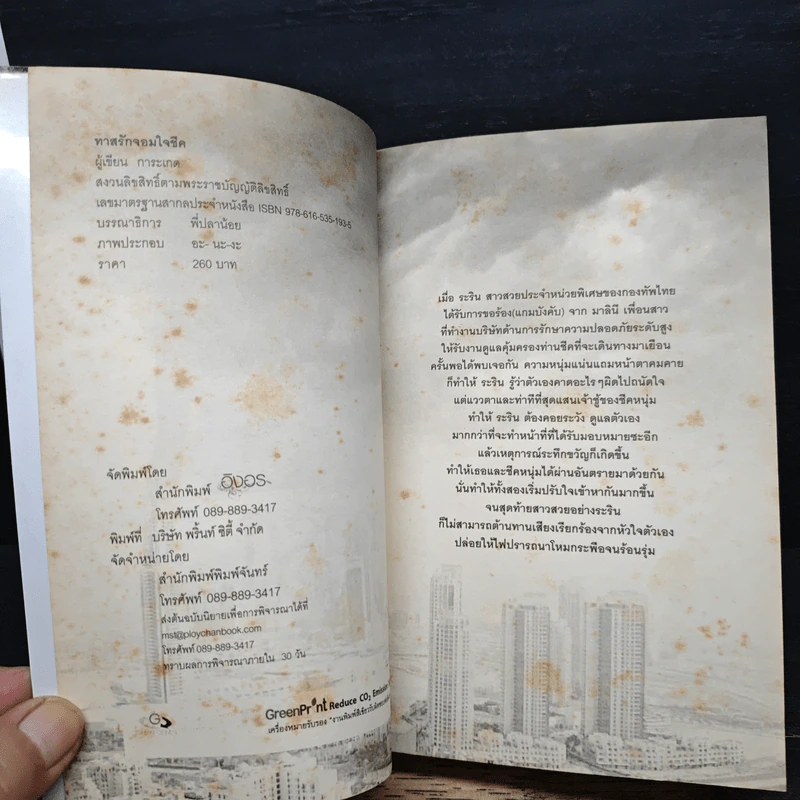 ทาสรักจอมใจชีค
ผู้เขียน การะเกด
สงวนลิขสิทธิ์ตามพระราชบัญญัติลิขสิทธิ์
เลขมาตรฐานสากลประจำหนังสือ ISBN 978-616-535-193-5
บรรณาธิการ พี่ปลาน้อย
ภาพประกอบ อะ- นะ-งะ
ราคา 260 บาท
จัดพิมพ์โดย
สำนักพิมพ์ อิงอร
โทรศัพท์ 089-889-3417
พิมพ์ที่ บริษัท พริ้นท์ ซิตี้ จำกัด
จัดจำหน่ายโดย
สำนักพิมพ์พิมพ์จันทร์
โทรศัพท์ 089-889-3417
ส่งต้นฉบับนิยายเพื่อการพิจารณาได้ที่
mst@ploychanbook.com
โทรศัพท์ 089-889-3417
ทราบผลการพิจารณาภายใน 30 วัน
GreenPrint Reduce CO2 Emission
เครื่องหมายรับรอง
เมื่อ ระริน สาวสวยประจำหน่วยพิเศษของกองทัพไทย
ได้รับการขอร้อง(แกมบังคับ) จาก มาลินี เพื่อนสาว
ที่ทำงานบริษัทด้านการรักษาความปลอดภัยระดับสูง
ให้รับงานดูแลคุ้มครองท่านชีคที่จะเดินทางมาเยือน
ครั้นพอได้พบเจอกัน ความหนุ่มแน่นแถมหน้าตาคมคาย
ก็ทำให้ ระริน รู้ว่าตัวเองคาดอะไรๆผิดไปถนัดใจ
แต่แววตาและท่าทีที่สุดแสนเจ้าชู้ของชีคหนุ่ม
ทำให้ ระริน ต้องคอยระวัง ดูแลตัวเอง
มากกว่าที่จะทำหน้าที่ที่ได้รับมอบหมายซะอีก
แล้วเหตุการณ์ระทึกขวัญก็เกิดขึ้น
ทำให้เธอและชีคหนุ่มได้ผ่านอันตรายมาด้วยกัน
นั่นทำให้ทั้งสองเริ่มปรับใจเข้าหากันมากขึ้น
จนสุดท้ายสาวสวยอย่างระริน
ก็ไม่สามารถต้านทานเสียงเรียกร้องจากหัวใจตัวเอง
ปล่อยให้ไฟปรารถนาโหมกระพือจนร้อนรุ่ม